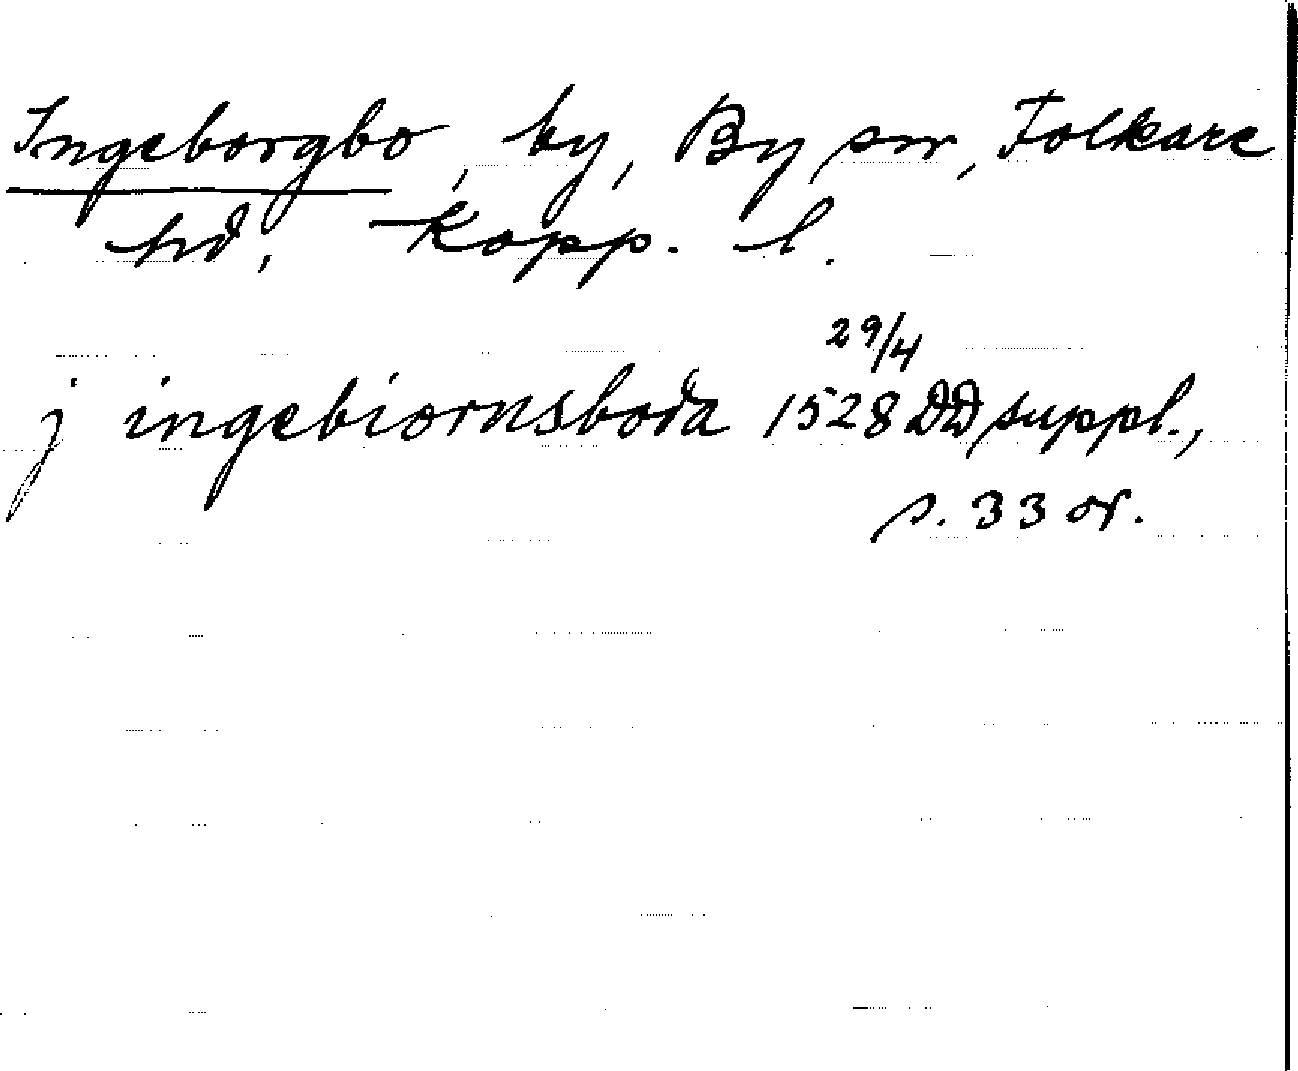 Ingeborgbo, by, By sn, Folkare
hd, Kopp. l.
29/4
j ingebiornsboda 1528 DD suppl.,
s. 33 or.